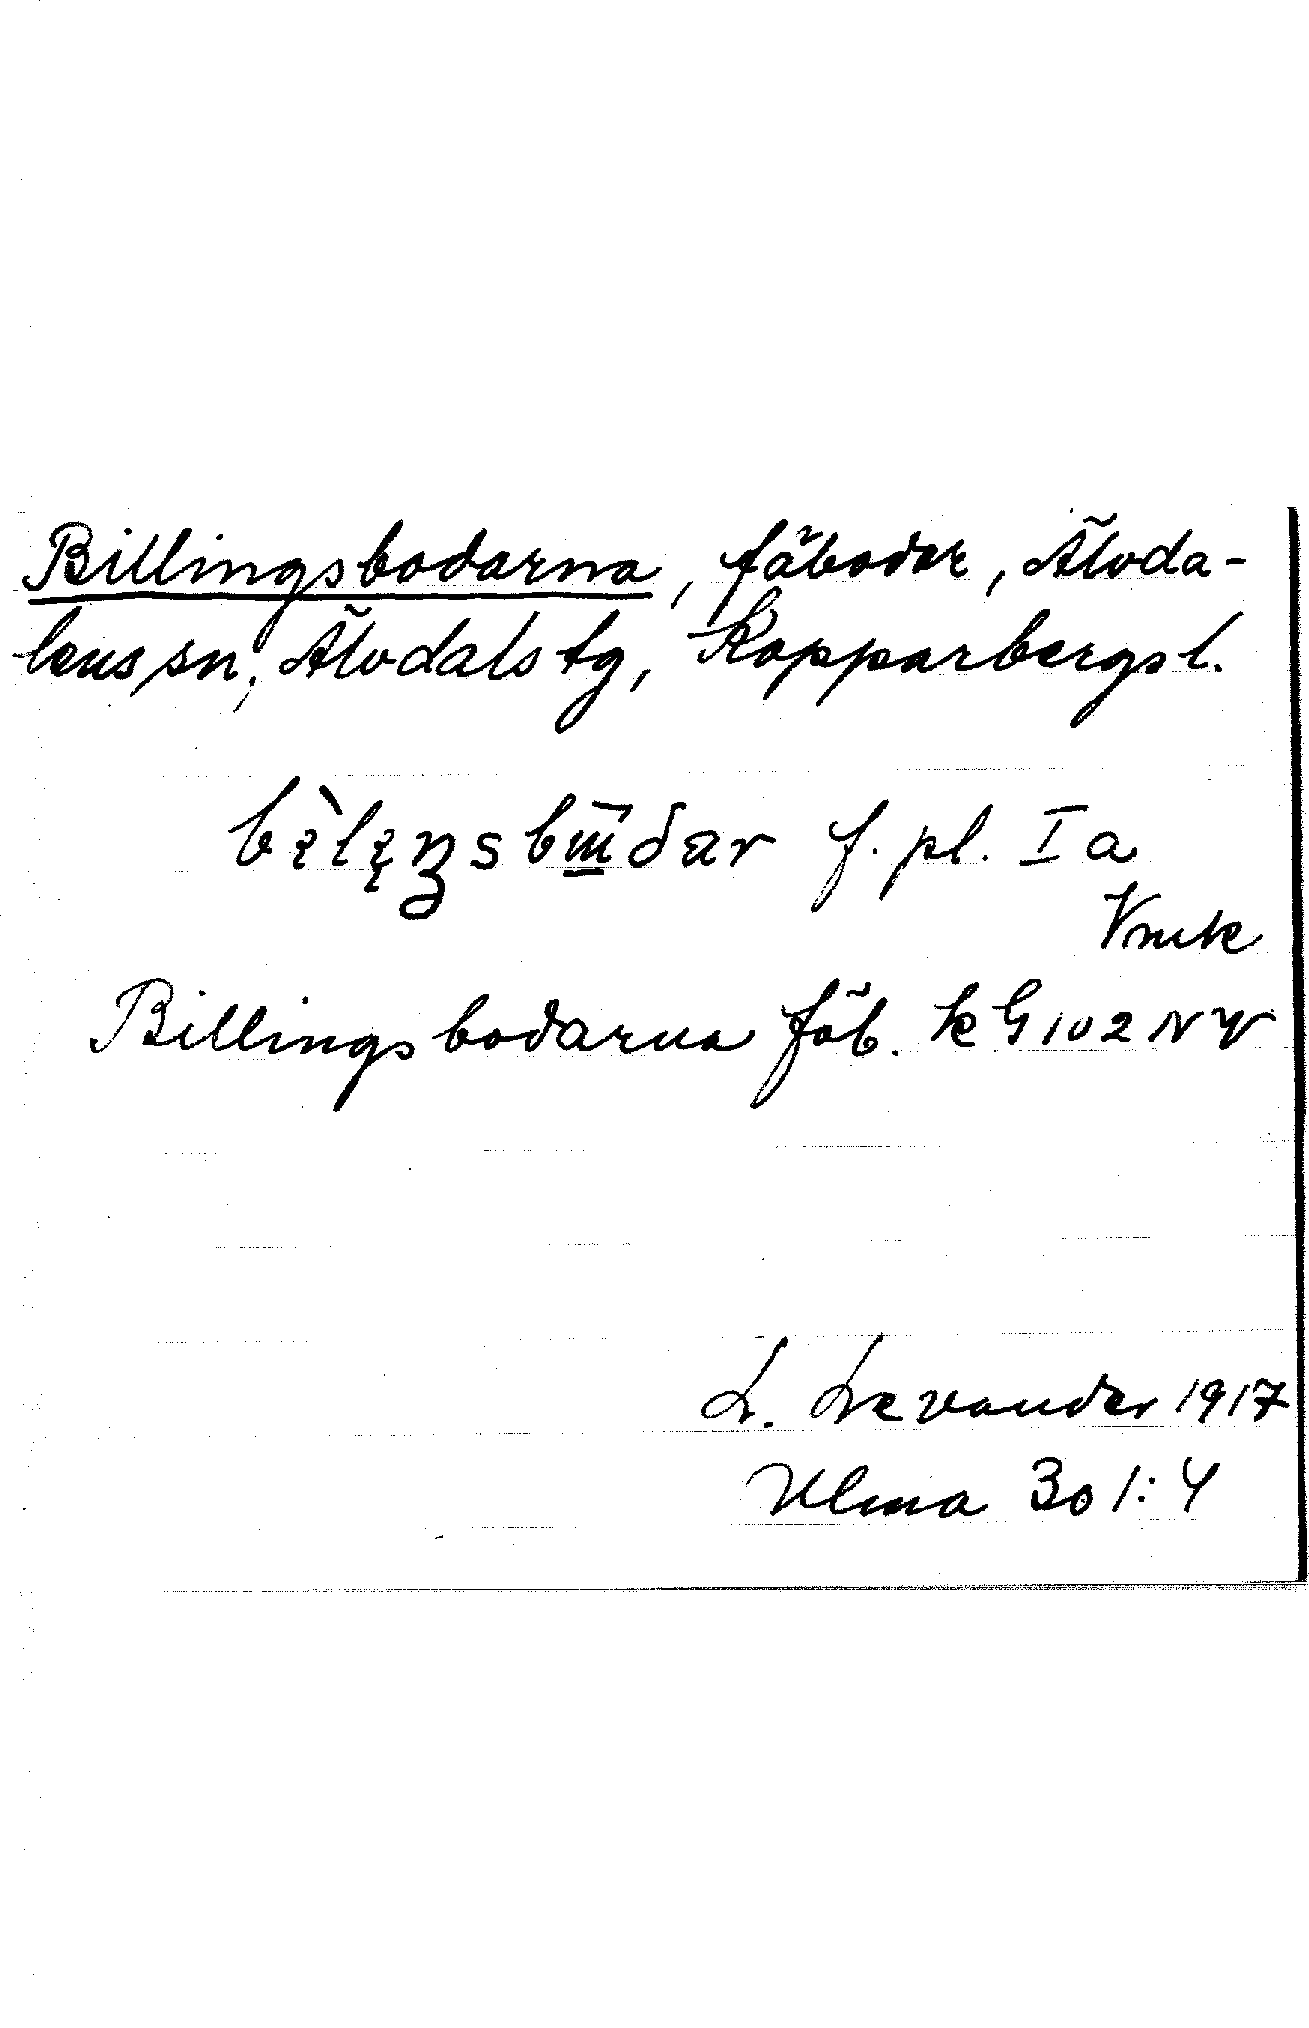 Billingsbodarna, fäbodar, Älvda-
lens sn, Älvdals tg, Kopparbergs l.
f. pl. I a
Vmk
Billingsbodarna fäb. k G 102 NV
L. Levander 1917
Ulma 301:4